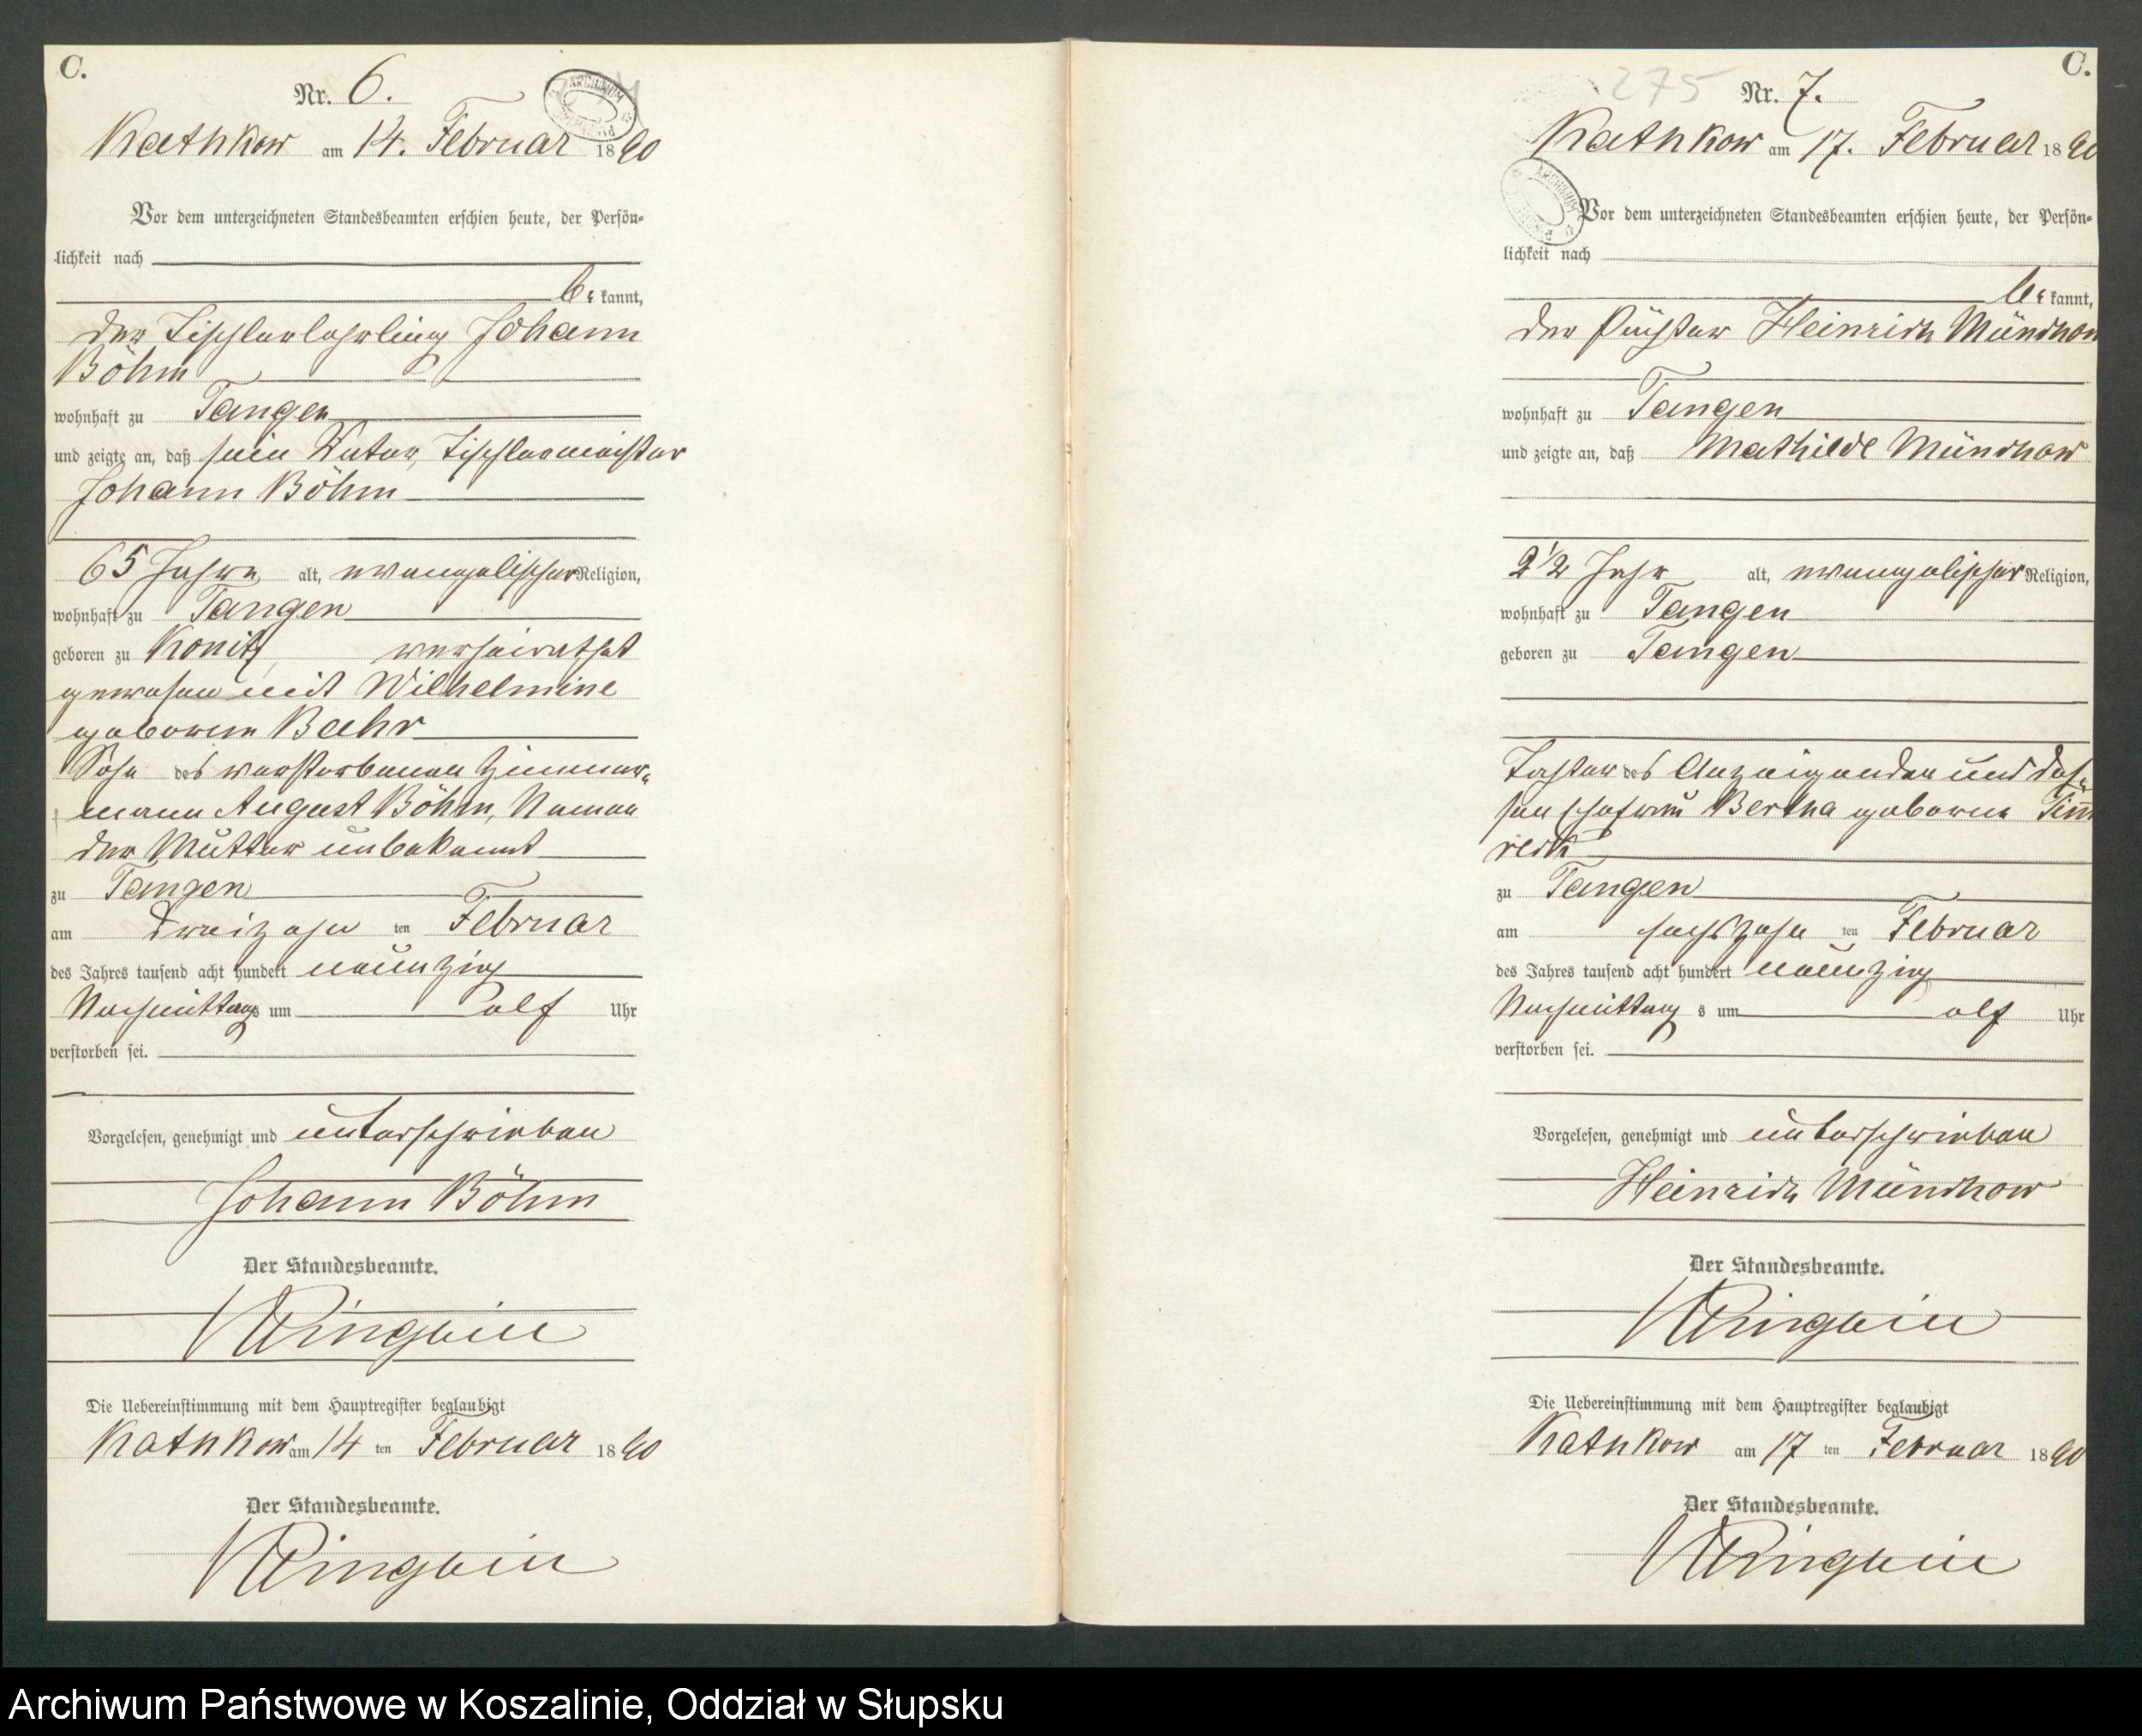 C.
Nr. 6.
Kathkow am 14. Februar 1890
Vor dem unterzeichneten Standesbeamten erschien heute, der Persön-
lichkeit nach
be kannt,
der Tischlerlehrling Johann
Böhm
wohnhaft zu Tangen
und zeigte an, daß sein Vater, Tischlermeister
Johann Böhm
65 Jahre alt, evangelischer Religion,
wohnhaft zu Tangen
geboren zu Konitz, verheirathet
gewesen mit Wilhelmine
geborene Bahr
Sohn des verstorbenen Zimmer-
mann August Böhm, Namen
der Mutter unbekannt
zu Tangen
am dreizehn ten Februar
des Jahres tausend acht hundert neunzig
Nachmittags um elf Uhr
verstorben sei.
Vorgelesen, genehmigt und unterschrieben
Johann Böhm
Der Standesbeamte.
Die Uebereinstimmung mit dem Hauptregister beglaubigt
Kathkow am 14 ten Februar 1890
Der Standesbeamte.
C.
275
Nr. 7.
Kathkow am 17. Februar 1890
Vor dem unterzeichneten Standesbeamten erschien heute, der Persön-
lichkeit nach
be kannt,
der Heinrich Münchow
wohnhaft zu Tangen
und zeigte an, daß Mathilde Münchow
2 1/2 Jahr alt, evangelischer Religion,
wohnhaft zu Tangen
geboren zu Tangen
Tochter des Anzeigenden und des-
sen Ehefrau Bertha geborene
zu Tangen
am sechszehn ten Februar
des Jahres tausend acht hundert neunzig
Nachmittag s um elf Uhr
verstorben sei.
Vorgelesen, genehmigt und unterschrieben
Heinrich Münchow
Der Standesbeamte.
Die Uebereinstimmung mit dem Hauptregister beglaubigt
Kathkow am 17 ten Februar 1890
Der Standesbeamte.
Archiwum Państwowe w Koszalinie, Oddział w Słupsku